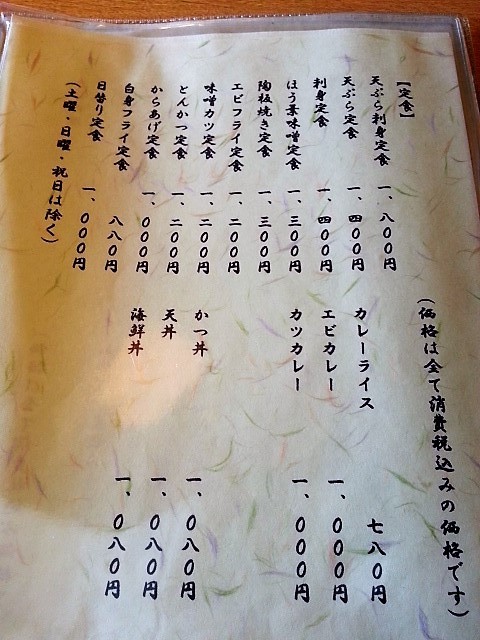 【定食】
天ぷら刺身定食 一、八〇〇円
天ぷら定食 一、四〇〇円
刺身定食 一、四〇〇円
ほう葉味噌定食 一、三〇〇円
陶板焼き定食 一、三〇〇円
エビフライ定食 一、二〇〇円
味噌カツ定食 一、二〇〇円
とんかつ定食 一、二〇〇円
からあげ定食 一、〇〇〇円
白身フライ定食 八八〇円
日替り定食 一、〇〇〇円
(土曜・日曜・祝日は除く)
(価格は全て消費税込みの価格です)
カレーライス 七八〇円
エビカレー 一、〇〇〇円
カツカレー 一、〇〇〇円
かつ丼 一、〇八〇円
天丼 一、〇八〇円
海鮮丼 一、〇八〇円